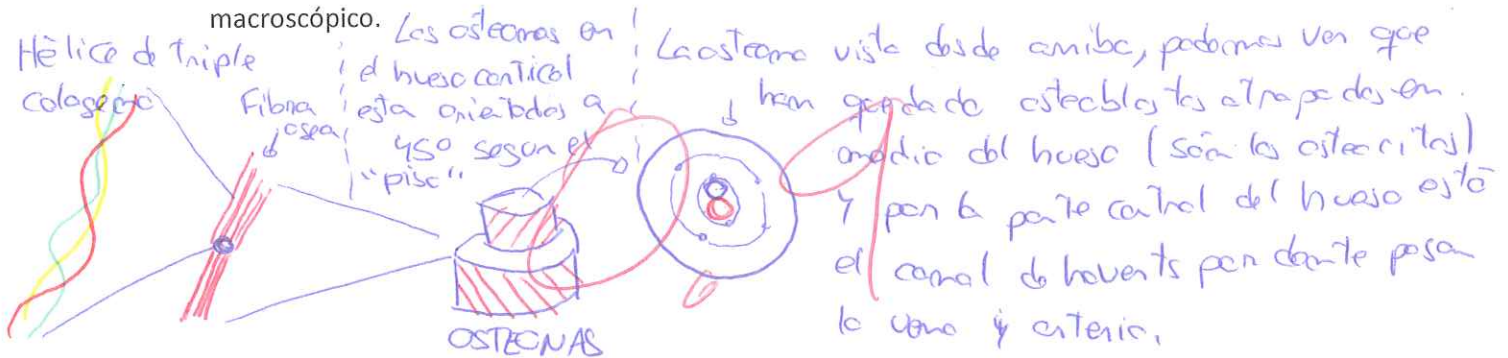 macroscópico.
Hèlice de triple
colageno
Fibra
osea
Las osteonas en
el hueso cortical
esta orientados a
45º segun el
"piso".
La osteona vista desde arriba, podemos ver que
han quedado osteoblastos atrapados en
medio del hueso (són los osteocitos)
y por la parte central del hueso está
el canal de havents por donte pasan
la vena y arteria.
OSTEONAS